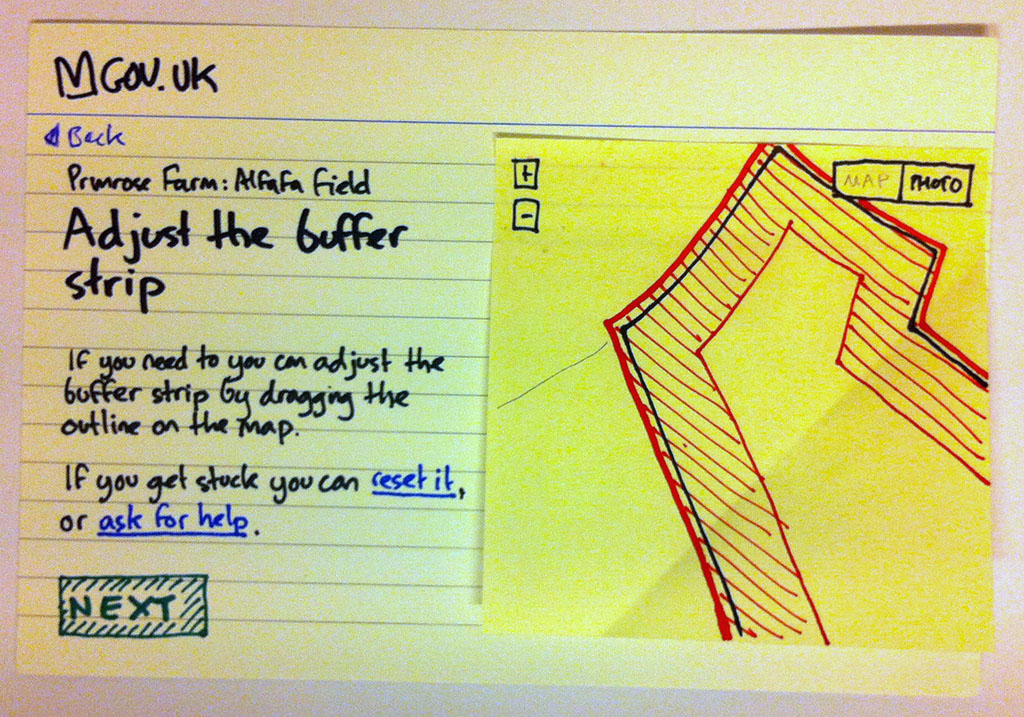 GOV.UK
Back
Primrose Farm: Alfafa Field
Adjust the buffer
strip
If you need to you can adjust the
buffer strip by dragging the
outline on the map.
If you get stuck you can reset it,
or ask for help.
NEXT
+
-
MAP PHOTO